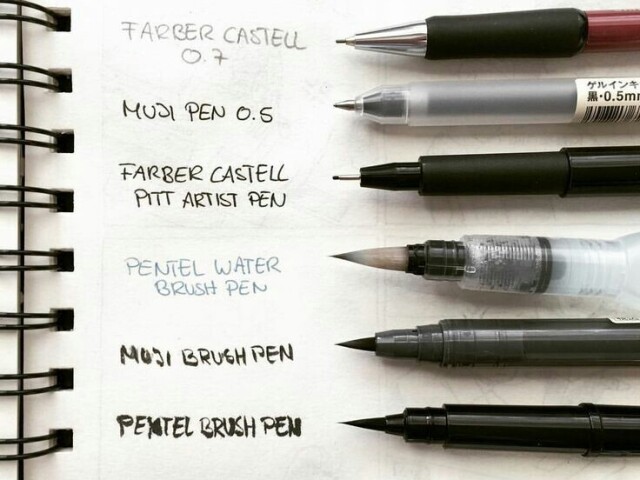 FARBER CASTELL
0.7
MUJI PEN 0.5
ゲルインキ
黒・0.5mm
FARBER CASTELL
PITT ARTIST PEN
PENTEL WATER
BRUSH PEN
MUJI BRUSH PEN
PENTEL BRUSH PEN